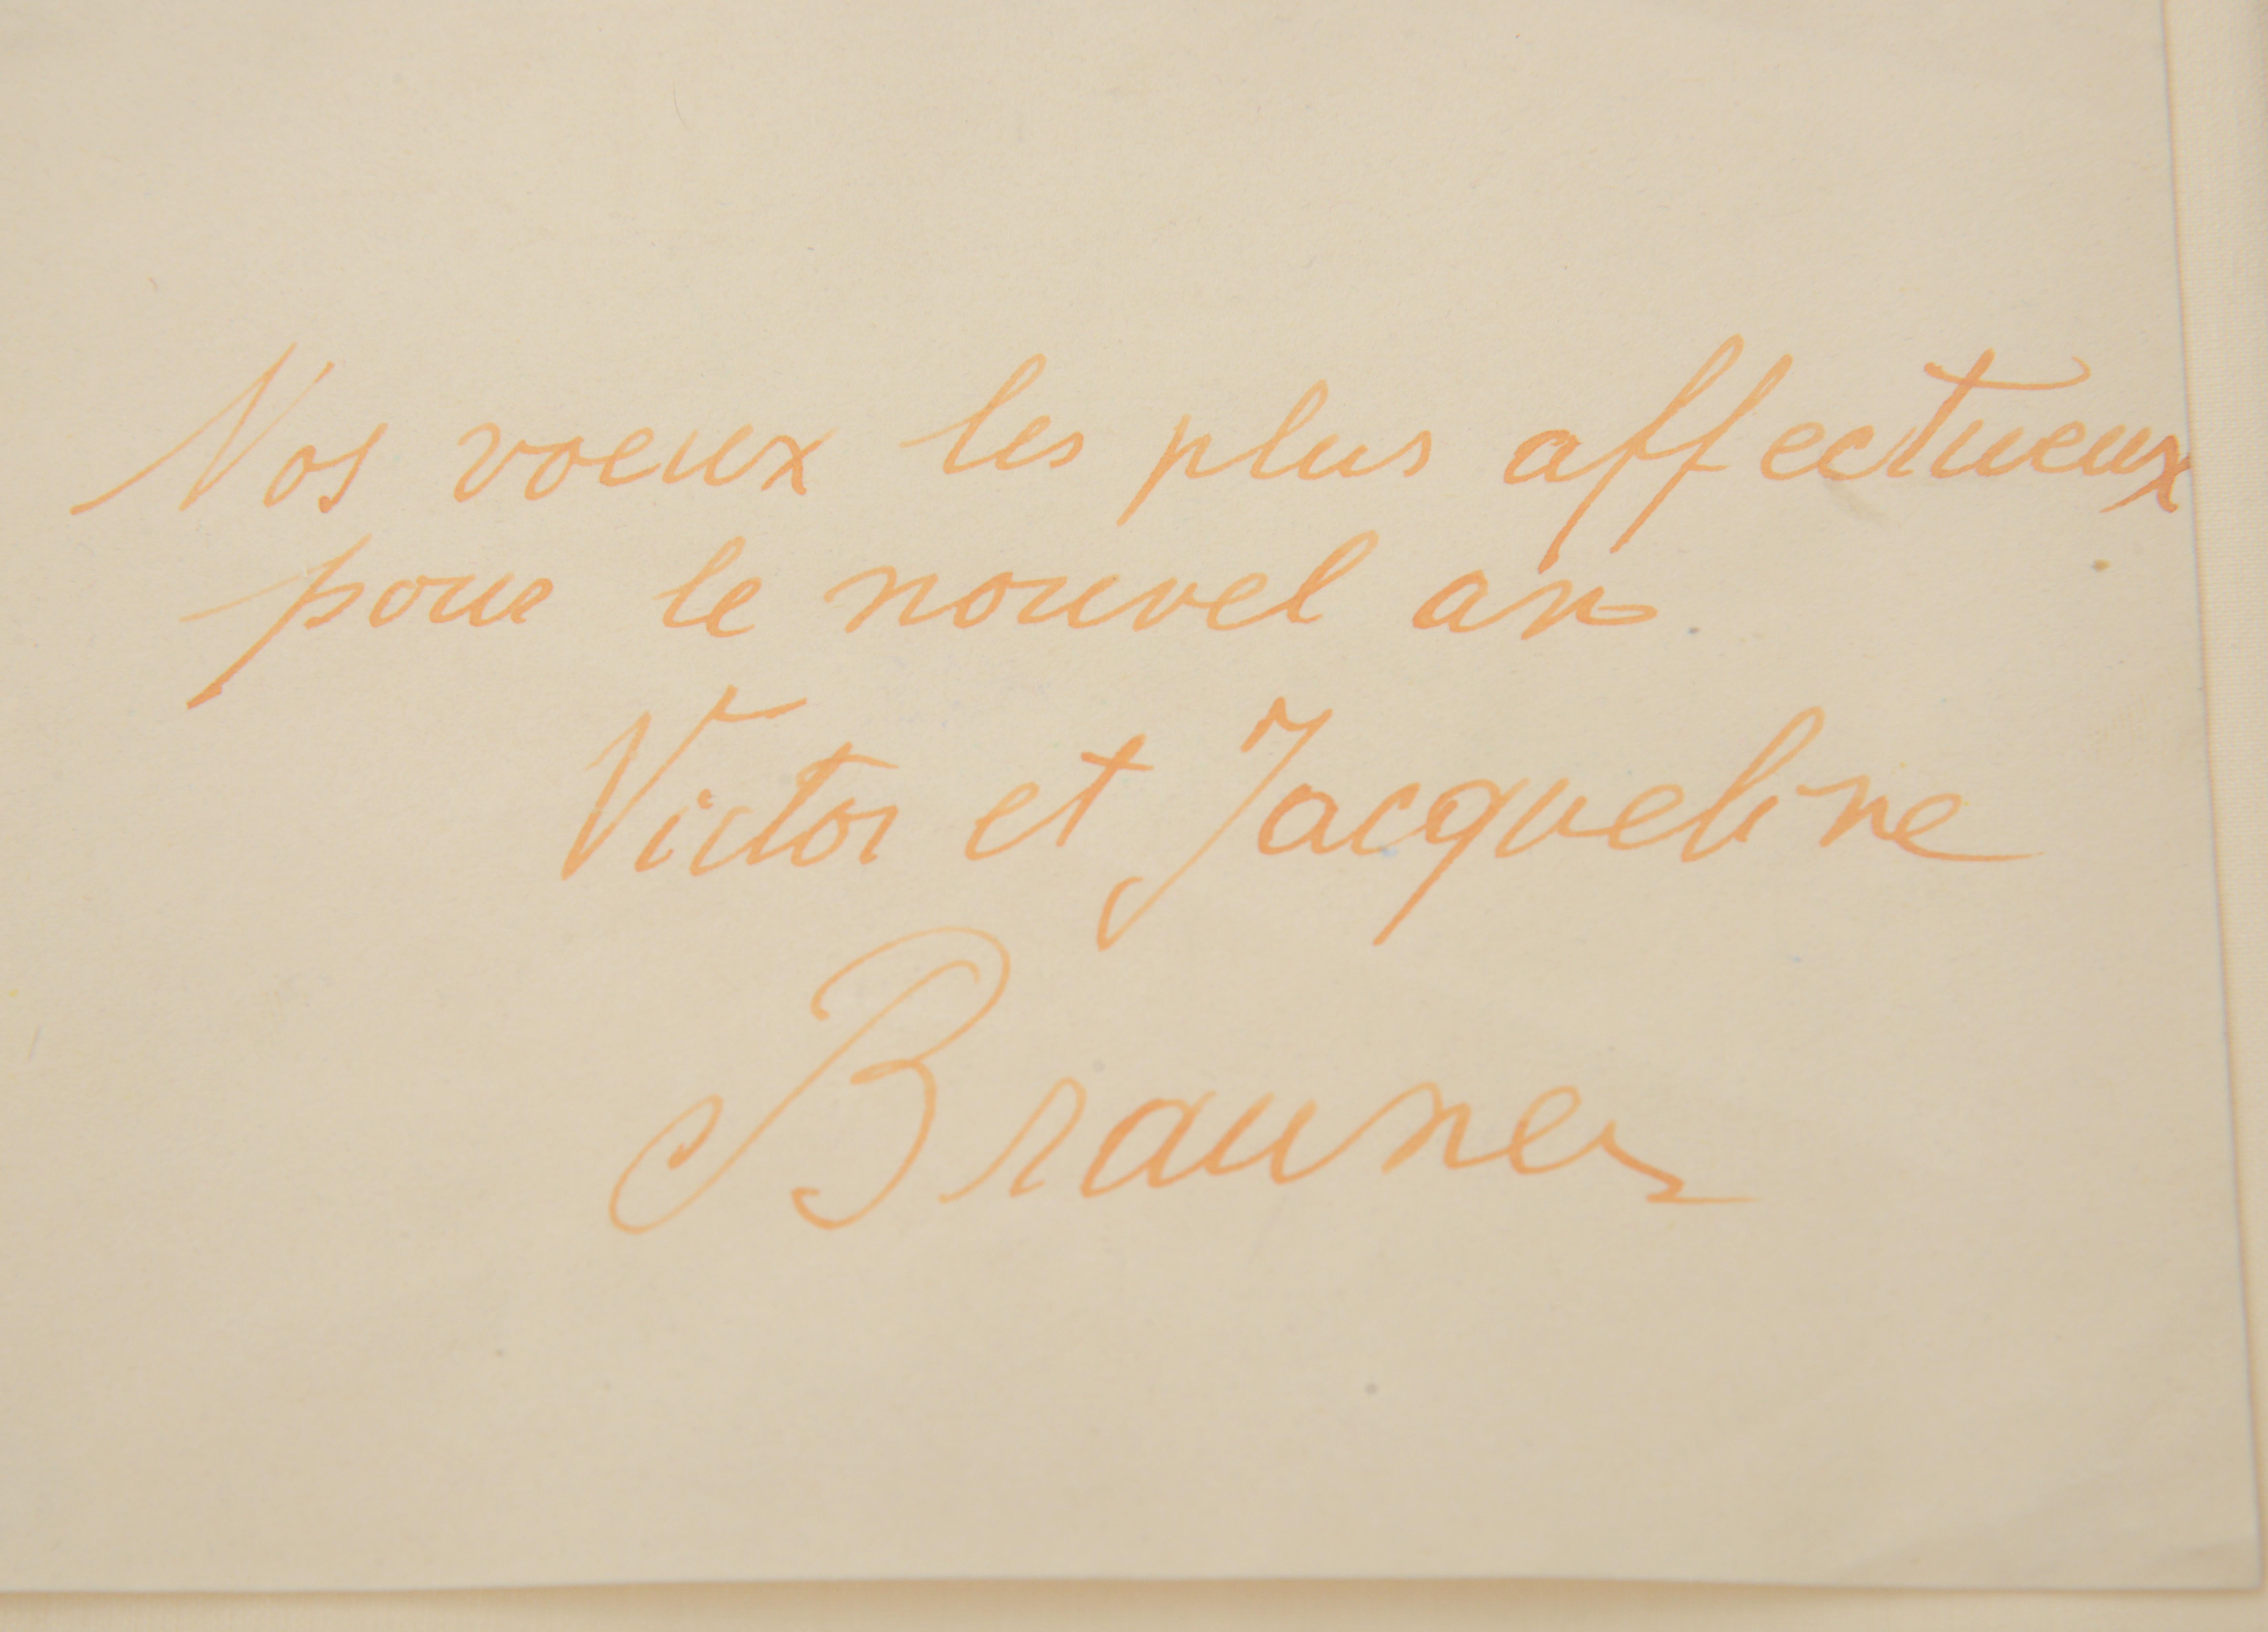 Nos voeux les plus affectueux
pour le nouvel an
Victor et Jacqueline
Brauner